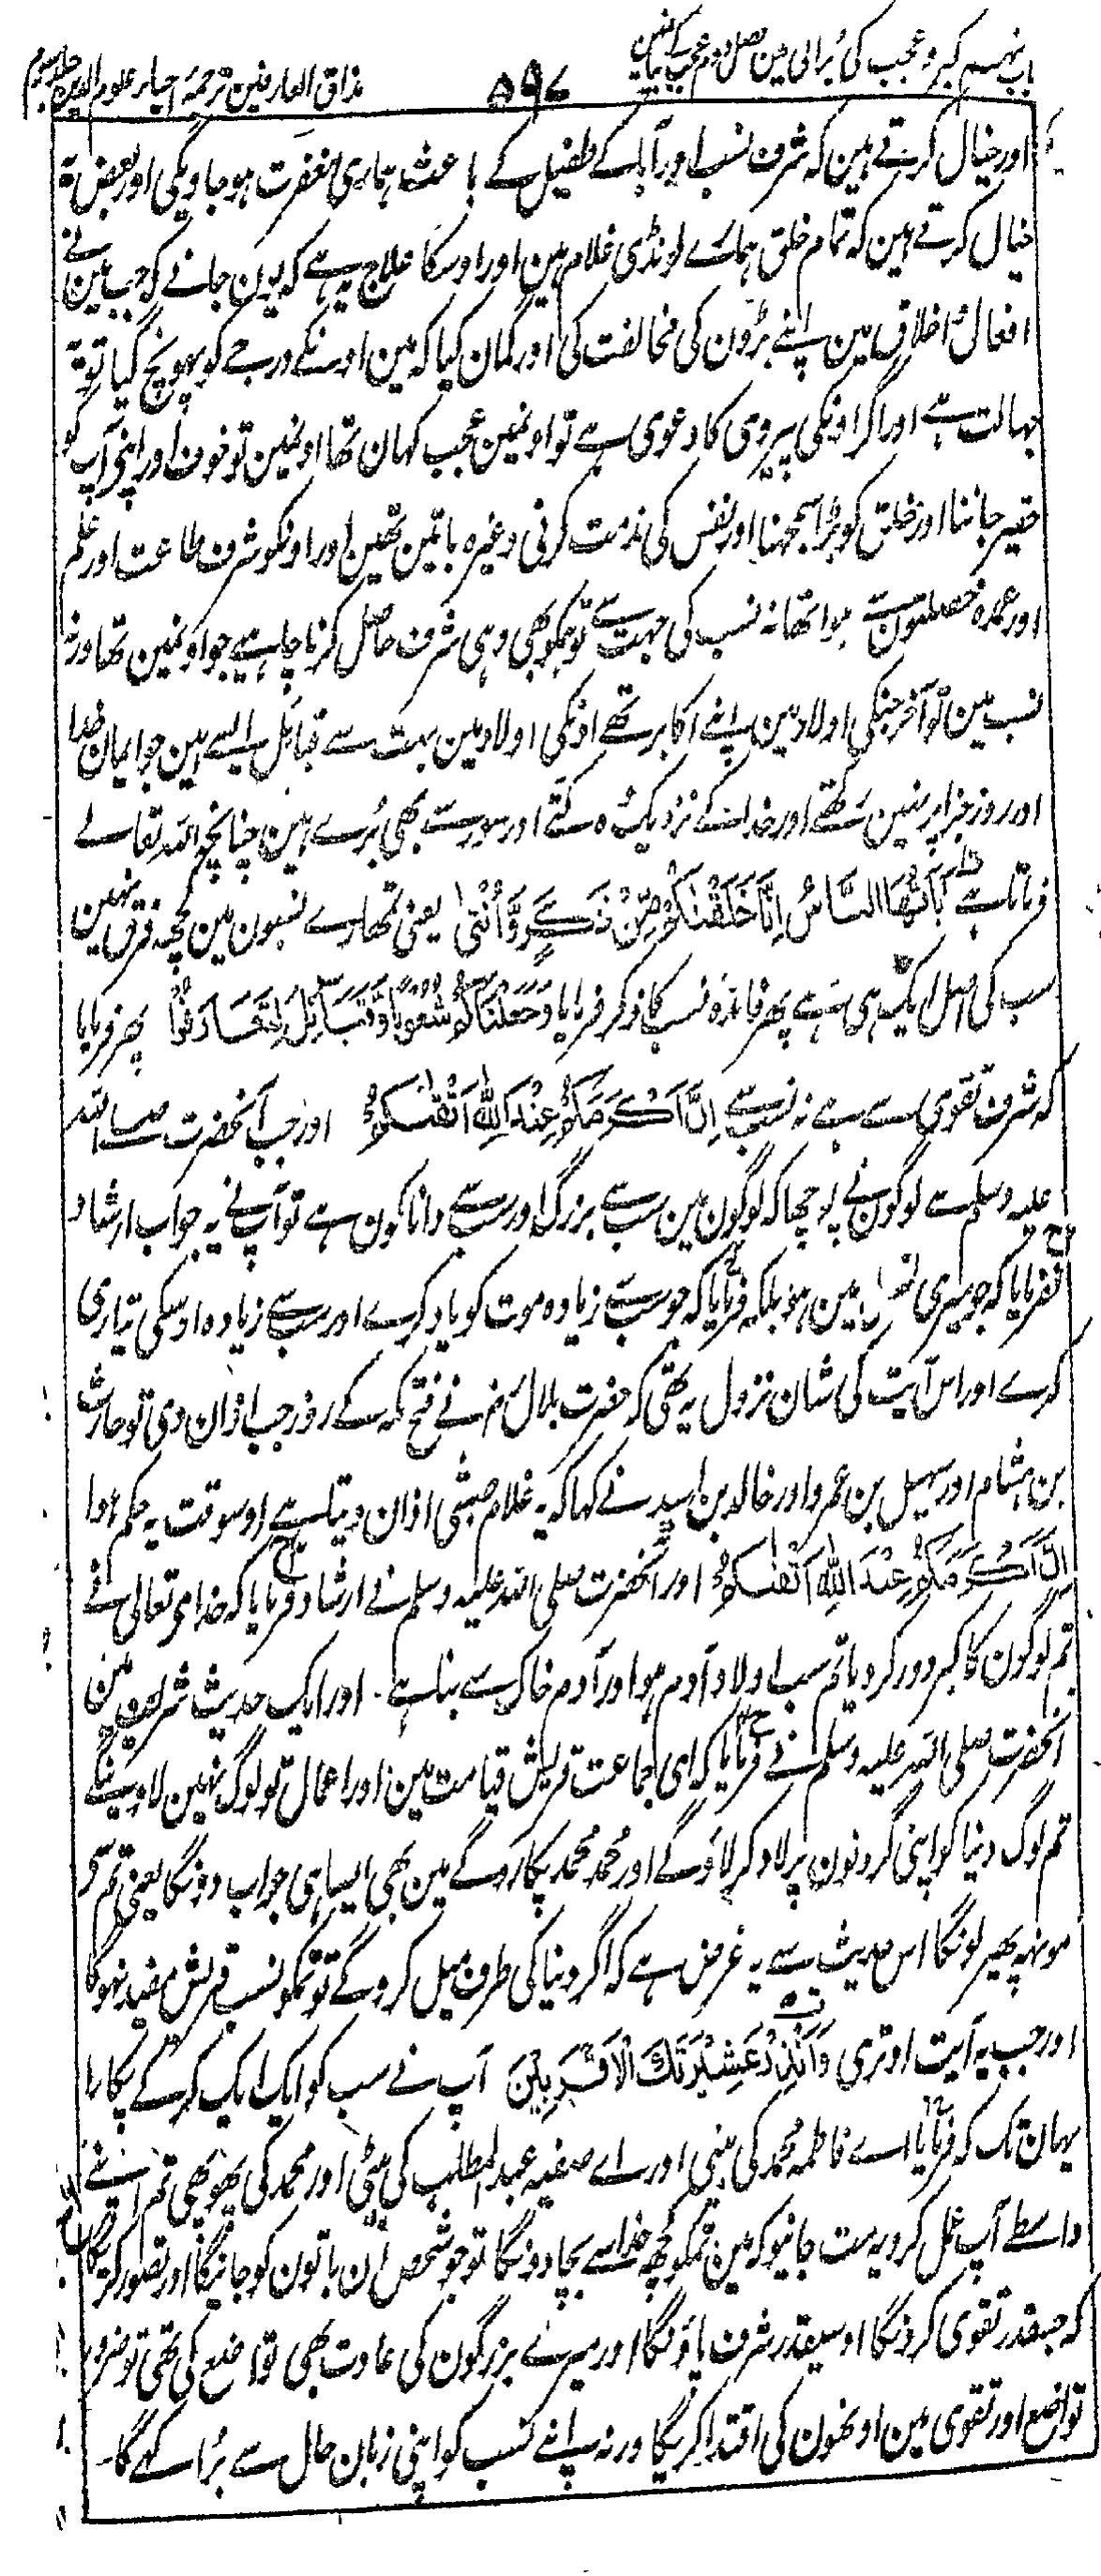 باب نہم کبر و عجب کی برائی مین فصل دوم عجب کے بیان مین
۵۹۷
مذاق العارفین ترجمۂ احیاء علوم الدین جلد سوم
اور خیال کرتے ہین کہ شرف نسب اور آبا کے طفیل کے باعث ہماری مغفرت ہو جاویگی اور بعض یہ
خیال کرتے ہین کہ تمام خلق ہمارے لونڈی غلام ہین اور اوسکا علاج یہ ہے کہ یون جانے کہ جب مین نے
افعال و اخلاق مین اپنے بڑون کی مخالفت کی اور گمان کیا کہ مین اونکے درجے کو پہونچ گیا تو یہ
جہالت ہے اور اگر اونکی پیروی کا دعوی ہے تو اونمین عجب کہان تھا اونمین تو خوف اور اپنے آپ کو
حقیر جاننا اور خلق کو بڑا سمجھنا اور نفس کی مذمت کرنی وغیرہ باتین تھین اور اونکو شرف طاعت اور علم
اور عمدہ خصلتون سے ہوا تھا نہ نسب کی جہت سے تو تمکو بھی وہی شرف حاصل کرنا چاہیے جو اونمین تھا ورنہ
نسب مین تو آخر جنکی اولاد مین اپنے اکابر تھے اونکی اولاد مین بہت سے قبائل ایسے ہین جو ایمان خدا
اور روز جزا پر نہین رکھتے اور خدا کے نزدیک وہ کتے اور سور سے بھی برے ہین چنانچہ اللہ تعالے
فرماتا ہے یَا اَیُّهَا النَّاسُ اِنَّا خَلَقْنَاكُمْ مِّنْ ذَكَرٍ وَّاُنْثٰی یعنی تمہارے نسبون مین کچھ فرق نہین
سب کی اصل ایک ہی ہے پھر فائدہ نسب کا ذکر فرمایا وَجَعَلْنَاكُمْ شُعُوْبًا وَّقَبَآئِلَ لِتَعَارَفُوْا پھر فرمایا
کہ شرف تقوی سے ہے نہ نسب سے اِنَّ اَكْرَمَكُمْ عِنْدَ اللّٰهِ اَتْقٰىكُمْ اور جب آنحضرت صلے اللہ
علیہ وسلم سے لوگون نے پوچھا کہ لوگون مین سب سے بزرگ اور سب سے دانا کون ہے تو آپ نے یہ جواب ارشاد
نفرمایا کہ جو میری نسل مین ہو بلکہ فرمایا کہ جو سب سے زیادہ موت کو یاد کرے اور سب سے زیادہ اوسکی تیاری
کرے اور اس آیت کی شان نزول یہ تھی کہ حضرت بلال رضہ نے فتح مکہ کے روز جب اذان دی تو حارث
بن ہشام اور سہیل بن عمرو اور خالد بن اسید نے کہا کہ یہ غلام حبشی اذان دیتا ہے اوسوقت یہ حکم ہوا
اِنَّ اَكْرَمَكُمْ عِنْدَ اللّٰهِ اَتْقٰىكُمْ اور آنحضرت صلی اللہ علیہ وسلم نے ارشاد فرمایا کہ خدای تعالی نے
تم لوگون کا کبر دور کر دیا تم سب اولاد آدم ہو اور آدم خاک سے بنا ہے۔ اور ایک حدیث شریف مین
آنحضرت صلی اللہ علیہ وسلم نے فرمایا کہ ای جماعت قریش قیامت مین اور اعمال تو لوگ نہین لاوینگے
تم لوگ دنیا کو اپنی گردنون پر لاد کر لاؤگے اور محمد محمد پکاروگے مین بھی ایسا ہی جواب دونگا یعنی تم سے
مونہہ پھیر لونگا اس حدیث سے یہ غرض ہے کہ اگر دنیا کی طرف میل کروگے تو تمکو نسب قریش مفید نہوگا
اور جب یہ آیت اوتری وَاَنْذِرْ عَشِیْرَتَكَ الْاَقْرَبِیْنَ آپ نے سب کو ایک ایک کرکے پکارا
یہان تک کہ فرمایا اے فاطمہ محمد کی بیٹی اور اے صفیہ عبد المطلب کی بیٹی اور محمد کی پھوپھی تم اپنے
واسطے آپ عمل کرو یہ مت جانیو کہ مین تمکو کچھ خدا سے بچا دونگا تو جو شخص ان باتون کو جانیگا اور تصور کریگا
کہ جسقدر تقوی کرونگا اوسیقدر شرف پاؤنگا اور میرے بزرگون کی عادت بھی تواضع کی تھی تو ضرور
تواضع اور تقوی مین اونھون کی اقتدا کریگا ورنہ اپنے نسب کو اپنی زبان حال سے برا کہے گا۔